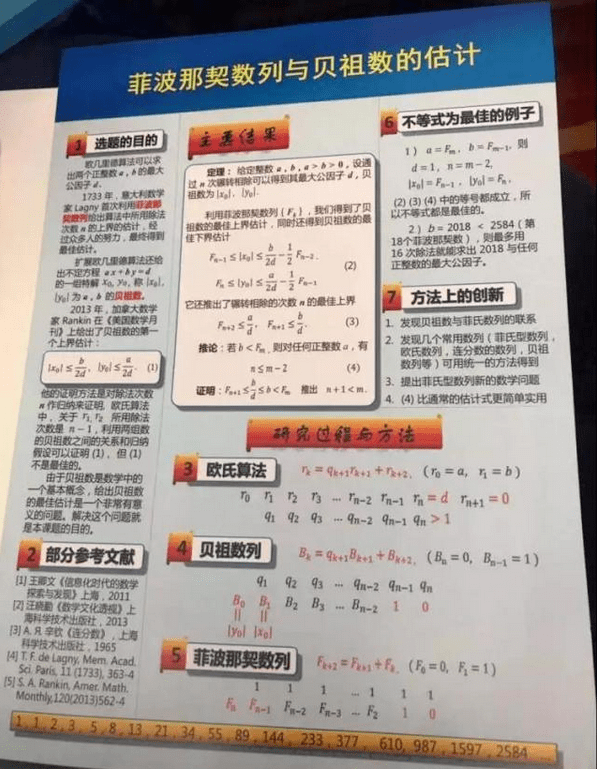 菲波那契数列与贝祖数的估计
1 选题的目的
欧几里德算法可以求
出两个正整数 a , b 的最大
公因子 d.
1733 年，意大利数学
家 Lagny 首次利用菲波那
契数列给出算法中所用除法
次数 n 的上界的估计，经
过众多人的努力，最终得到
最佳估计。
扩展欧几里德算法还给
出不定方程 ax + by = d
的一组特解 x₀, y₀, 称 |x₀|,
|y₀| 为 a , b 的贝祖数。
2013 年，加拿大数学
家 Rankin 在《美国数学月
刊》上给出了贝祖数的第一
个上界估计：
|x₀| ≤ b/2d, |y₀| ≤ a/2d. (1)
他的证明方法是对除法次数
n 作归纳来证明, 欧氏算法
中，关于 r₁, r₂ 所用除法
次数是 n − 1 , 利用两组数
的贝祖数之间的关系和归纳
假设可以证明 (1) 、但 (1)
不是最佳的。
由于贝祖数是数学中的
一个基本概念，给出贝祖数
的最佳估计是一个非常有意
义的问题。解决这个问题就
是本课题的目的。
2 部分参考文献
[1] 王卿文《信息化时代的数学
探索与发现》上海，2011
[2] 汪晓勤《数学文化透视》上
海科学技术出版社，2013
[3] А. Я. 辛钦《连分数》，上海
科学技术出版社，1965
[4] T. F. de Lagny, Mem. Acad.
Sci. Paris, 11 (1733), 363-4
[5] S. A. Rankin, Amer. Math.
Monthly,120(2013)562-4
主要结果
定理： 给定整数 a , b , a > b > 0 , 设通
过 n 次辗转相除可以得到其最大公因子 d , 贝
祖数为 |x₀|, |y₀|.
利用菲波那契数列 { Fₖ } , 我们得到了贝
祖数的最佳上界估计，同时还得到贝祖数的最
佳下界估计
Fₙ₋₁ ≤ |x₀| ≤ b/2d − 1/2 Fₙ₋₂.
(2)
Fₙ ≤ |y₀| ≤ a/2d − 1/2 Fₙ₋₁
它还推出了辗转相除的次数 n 的最佳上界
Fₙ₊₂ ≤ a/d, Fₙ₊₁ ≤ b/d. (3)
推论：若 b < Fₘ , 则对任何正整数 a , 有
n ≤ m − 2 (4)
证明：Fₙ₊₁ ≤ b/d ≤ b < Fₘ 推出 n + 1 < m.
6 不等式为最佳的例子
1 ) a = Fₘ, b = Fₘ₋₁, 则
d = 1, n = m − 2,
|x₀| = Fₙ₋₁ , |y₀| = Fₙ,
(2) (3) (4) 中的等号都成立，所
以不等式都是最佳的。
2 ) b = 2018 < 2584 ( 第
18个菲波那契数 ) , 则最多用
16 次除法就能求出 2018 与任何
正整数的最大公因子。
7 方法上的创新
1. 发现贝祖数与菲氏数列的联系
2. 发现几个常用数列（菲氏型数列，
欧氏数列，连分数的数列，贝祖
数列等）可用统一的方法得到
3. 提出菲氏型数列新的数学问题
4. (4) 比通常的估计式更简单实用
研究过程与方法
3 欧氏算法 rₖ = qₖ₊₁rₖ₊₁ + rₖ₊₂, (r₀ = a, r₁ = b)
r₀ r₁ r₂ r₃ ... rₙ₋₂ rₙ₋₁ rₙ = d rₙ₊₁ = 0
q₁ q₂ q₃ ... qₙ₋₂ qₙ₋₁ qₙ > 1
4 贝祖数列 Bₖ = qₖ₊₁Bₖ₊₁ + Bₖ₊₂, (Bₙ = 0, Bₙ₋₁ = 1)
q₁ q₂ q₃ ... qₙ₋₂ qₙ₋₁ qₙ
B₀ B₁ B₂ B₃ ... Bₙ₋₂ 1 0
|| ||
|y₀| |x₀|
5 菲波那契数列 Fₖ₊₂ = Fₖ₊₁ + Fₖ, (F₀ = 0, F₁ = 1)
1 1 1 ... 1 1 1
Fₙ Fₙ₋₁ Fₙ₋₂ Fₙ₋₃ ... F₂ 1 0
1 , 1 , 2 , 3 , 5 , 8 , 13 , 21 , 34 , 55 , 89 , 144 , 233 , 377 , 610, 987 , 1597 , 2584 ...